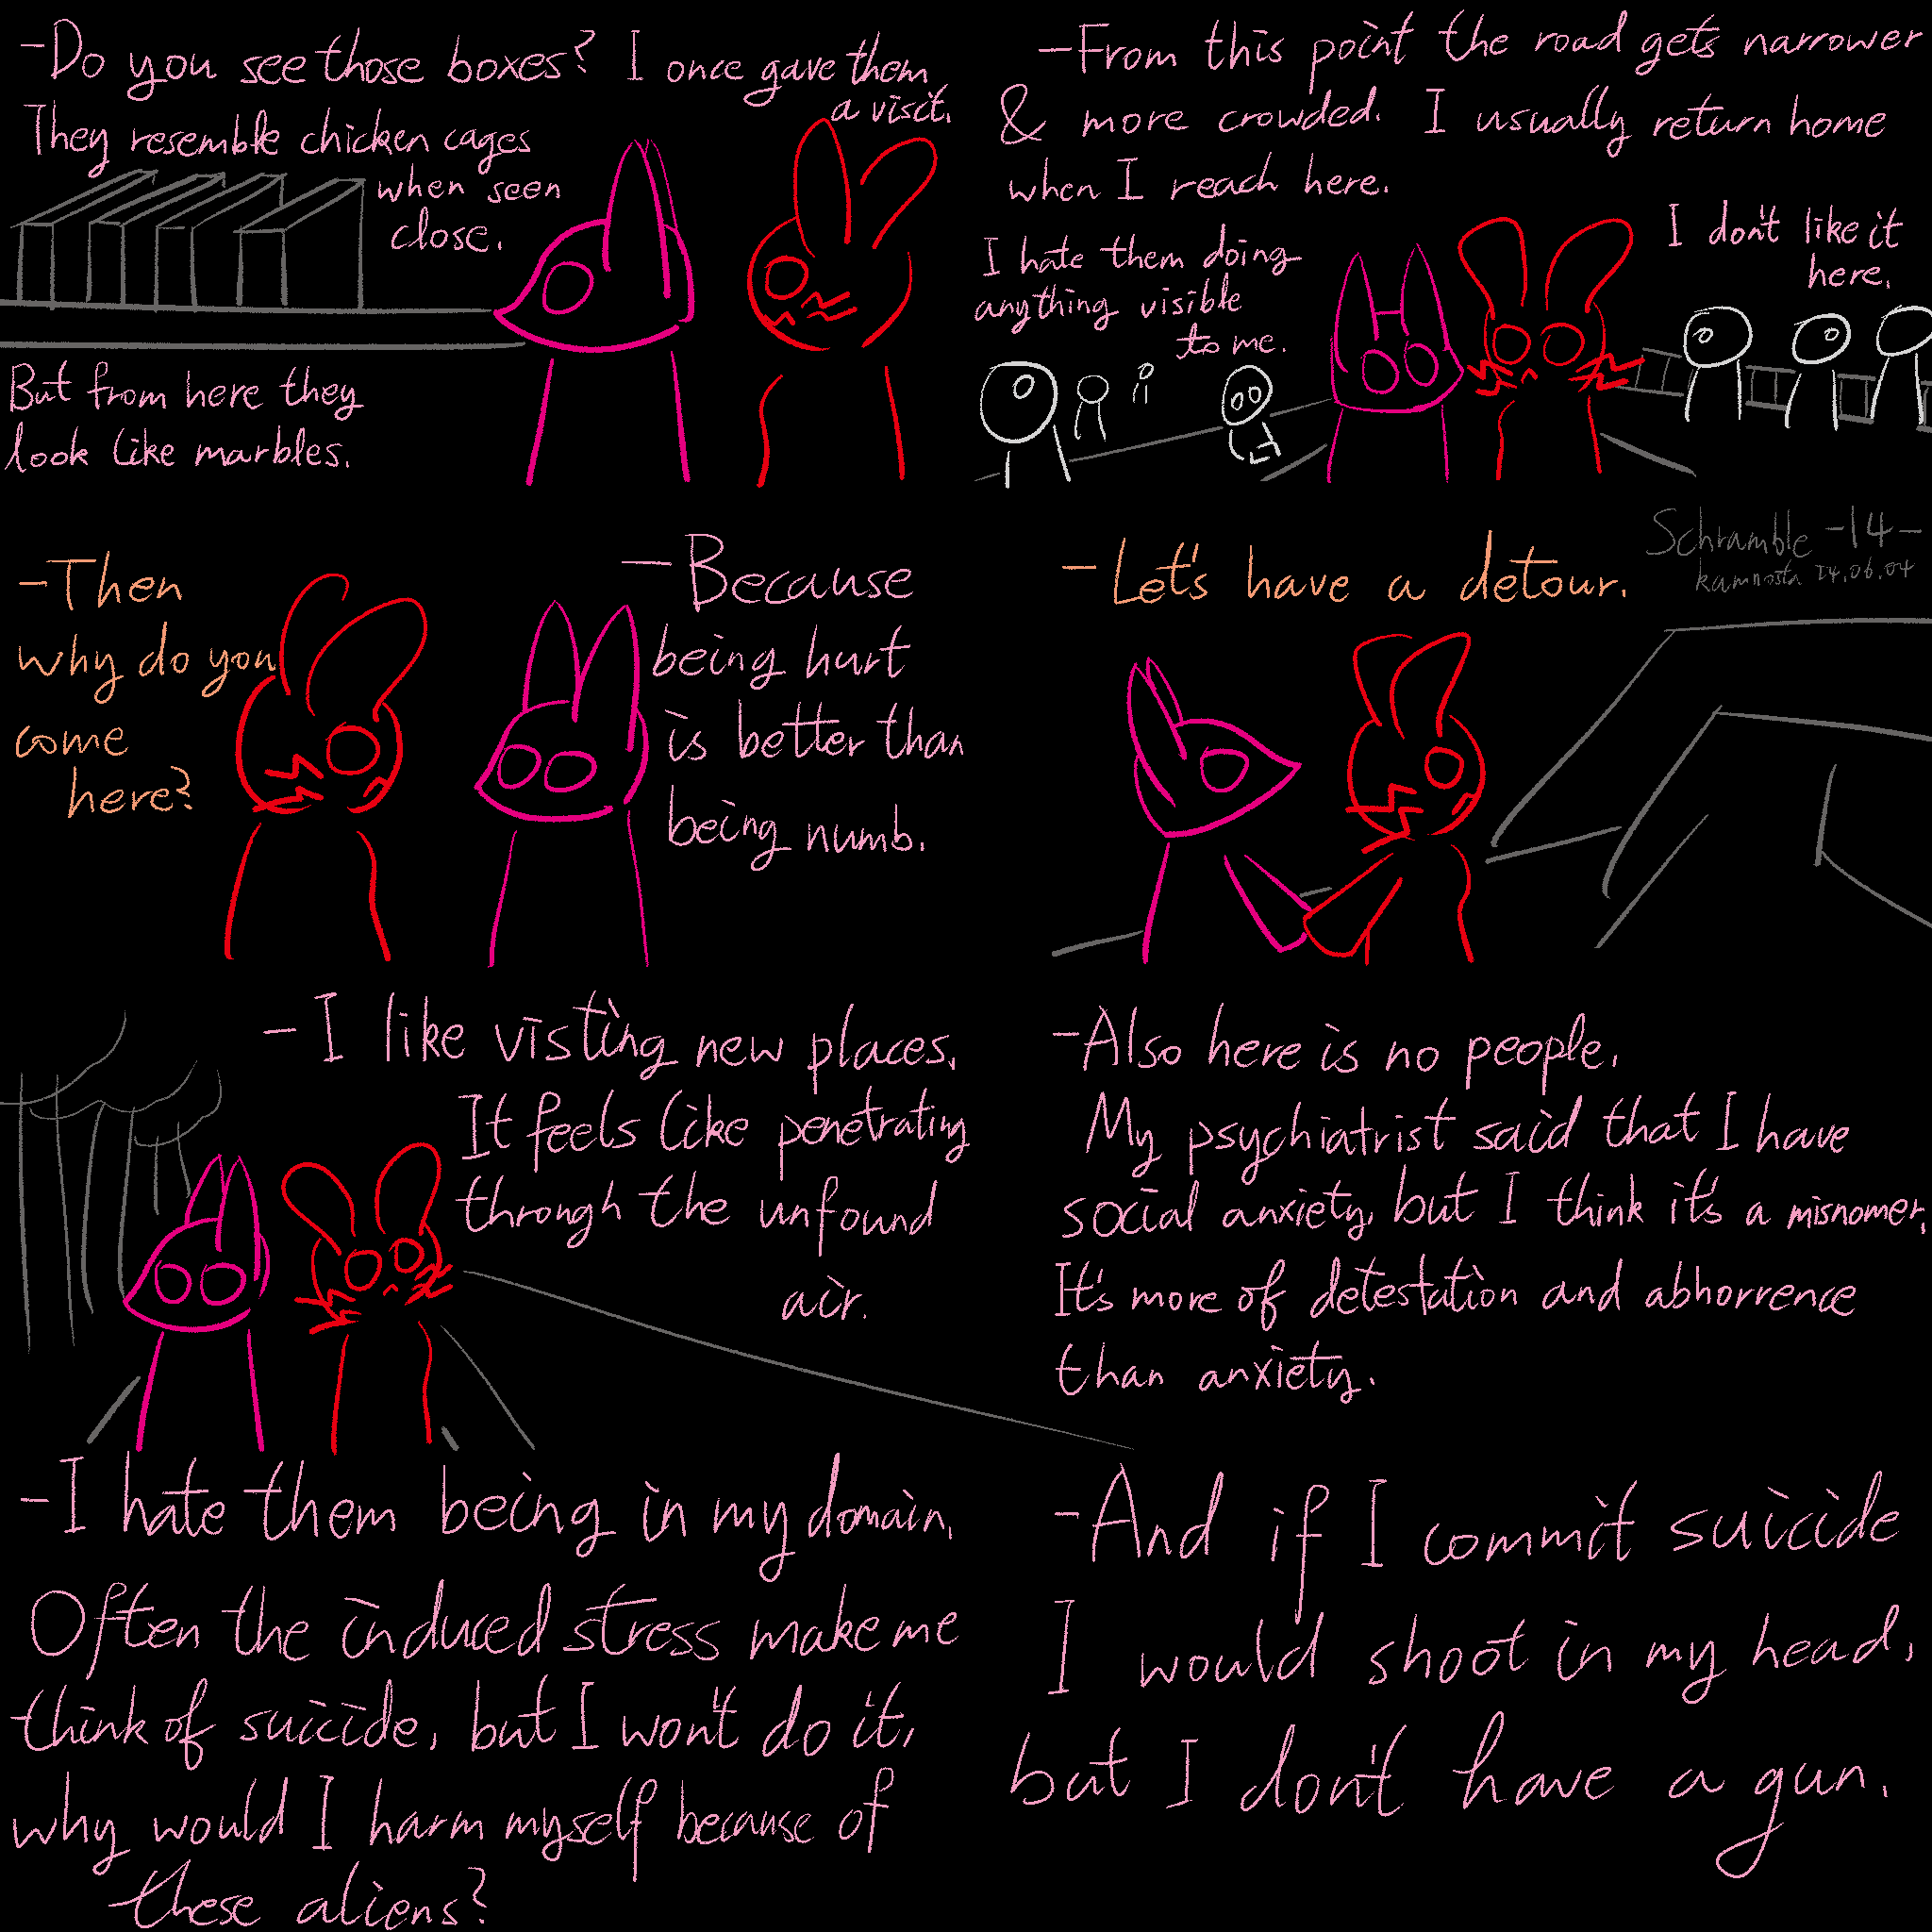 -Do you see those boxes? I once gave them
a visit.
They resemble chicken cages
when seen
close.
But from here they
look like marbles.
-From this point the road gets narrower
& more crowded. I usually return home
when I reach here.
I hate them doing
anything visible
to me.
I don't like it
here.
-Then
why do you
come
here?
-Because
being hurt
is better than
being numb.
-Let's have a detour.
Schramble -14-
kamnosta 14.06.04
-I like visting new places.
It feels like penetrating
through the unfound
air.
-Also here is no people.
My psychiatrist said that I have
social anxiety, but I think it's a misnomer.
It's more of detestation and abhorrence
than anxiety.
-I hate them being in my domain.
Often the induced stress make me
think of suicide, but I won't do it,
why would I harm myself because of
these aliens?
-And if I commit suicide
I would shoot in my head,
but I don't have a gun.